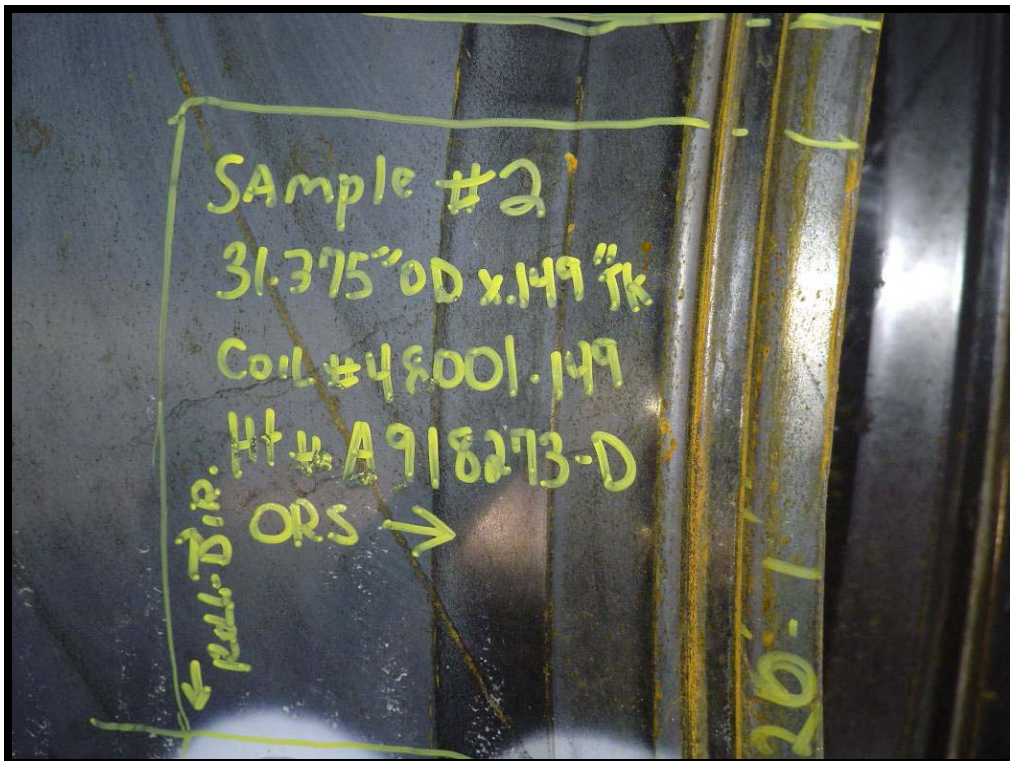 SAmple #2
31.375" OD x .149" Tk
Coil #48001.149
Ht # A918273-D
ORS →
Roll. Dir.